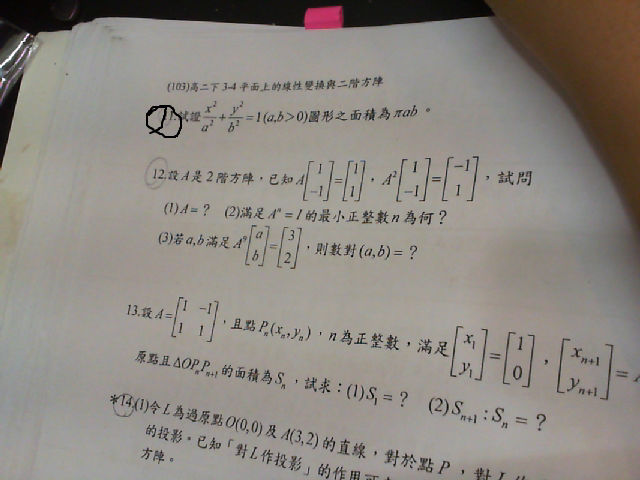 (103)高二下 3-4 平面上的線性變換與二階方陣
試證 x²/a² + y²/b² = 1 (a,b>0)圖形之面積為πab。
12.設 A 是 2 階方陣，已知 A[1 -1]=[1 1]，A²[1 -1]=[-1 1]，試問
(1) A = ? (2)滿足 Aⁿ = I 的最小正整數 n 為何？
(3)若 a,b 滿足 A⁹[a b]=[3 2]，則數對 (a,b) = ?
13.設 A=[1 -1 1 1]，且點 Pₙ(xₙ,yₙ)，n 為正整數，滿足[x₁ y₁]=[1 0]，[xₙ₊₁ yₙ₊₁]=
原點且 ΔOPₙPₙ₊₁ 的面積為 Sₙ，試求：(1) S₁ = ? (2) Sₙ₊₁ : Sₙ = ?
*14.(1)令 L 為過原點 O(0,0) 及 A(3,2) 的直線，對於點 P，對 L 作
的投影。已知「對 L 作投影」的作用
方陣。